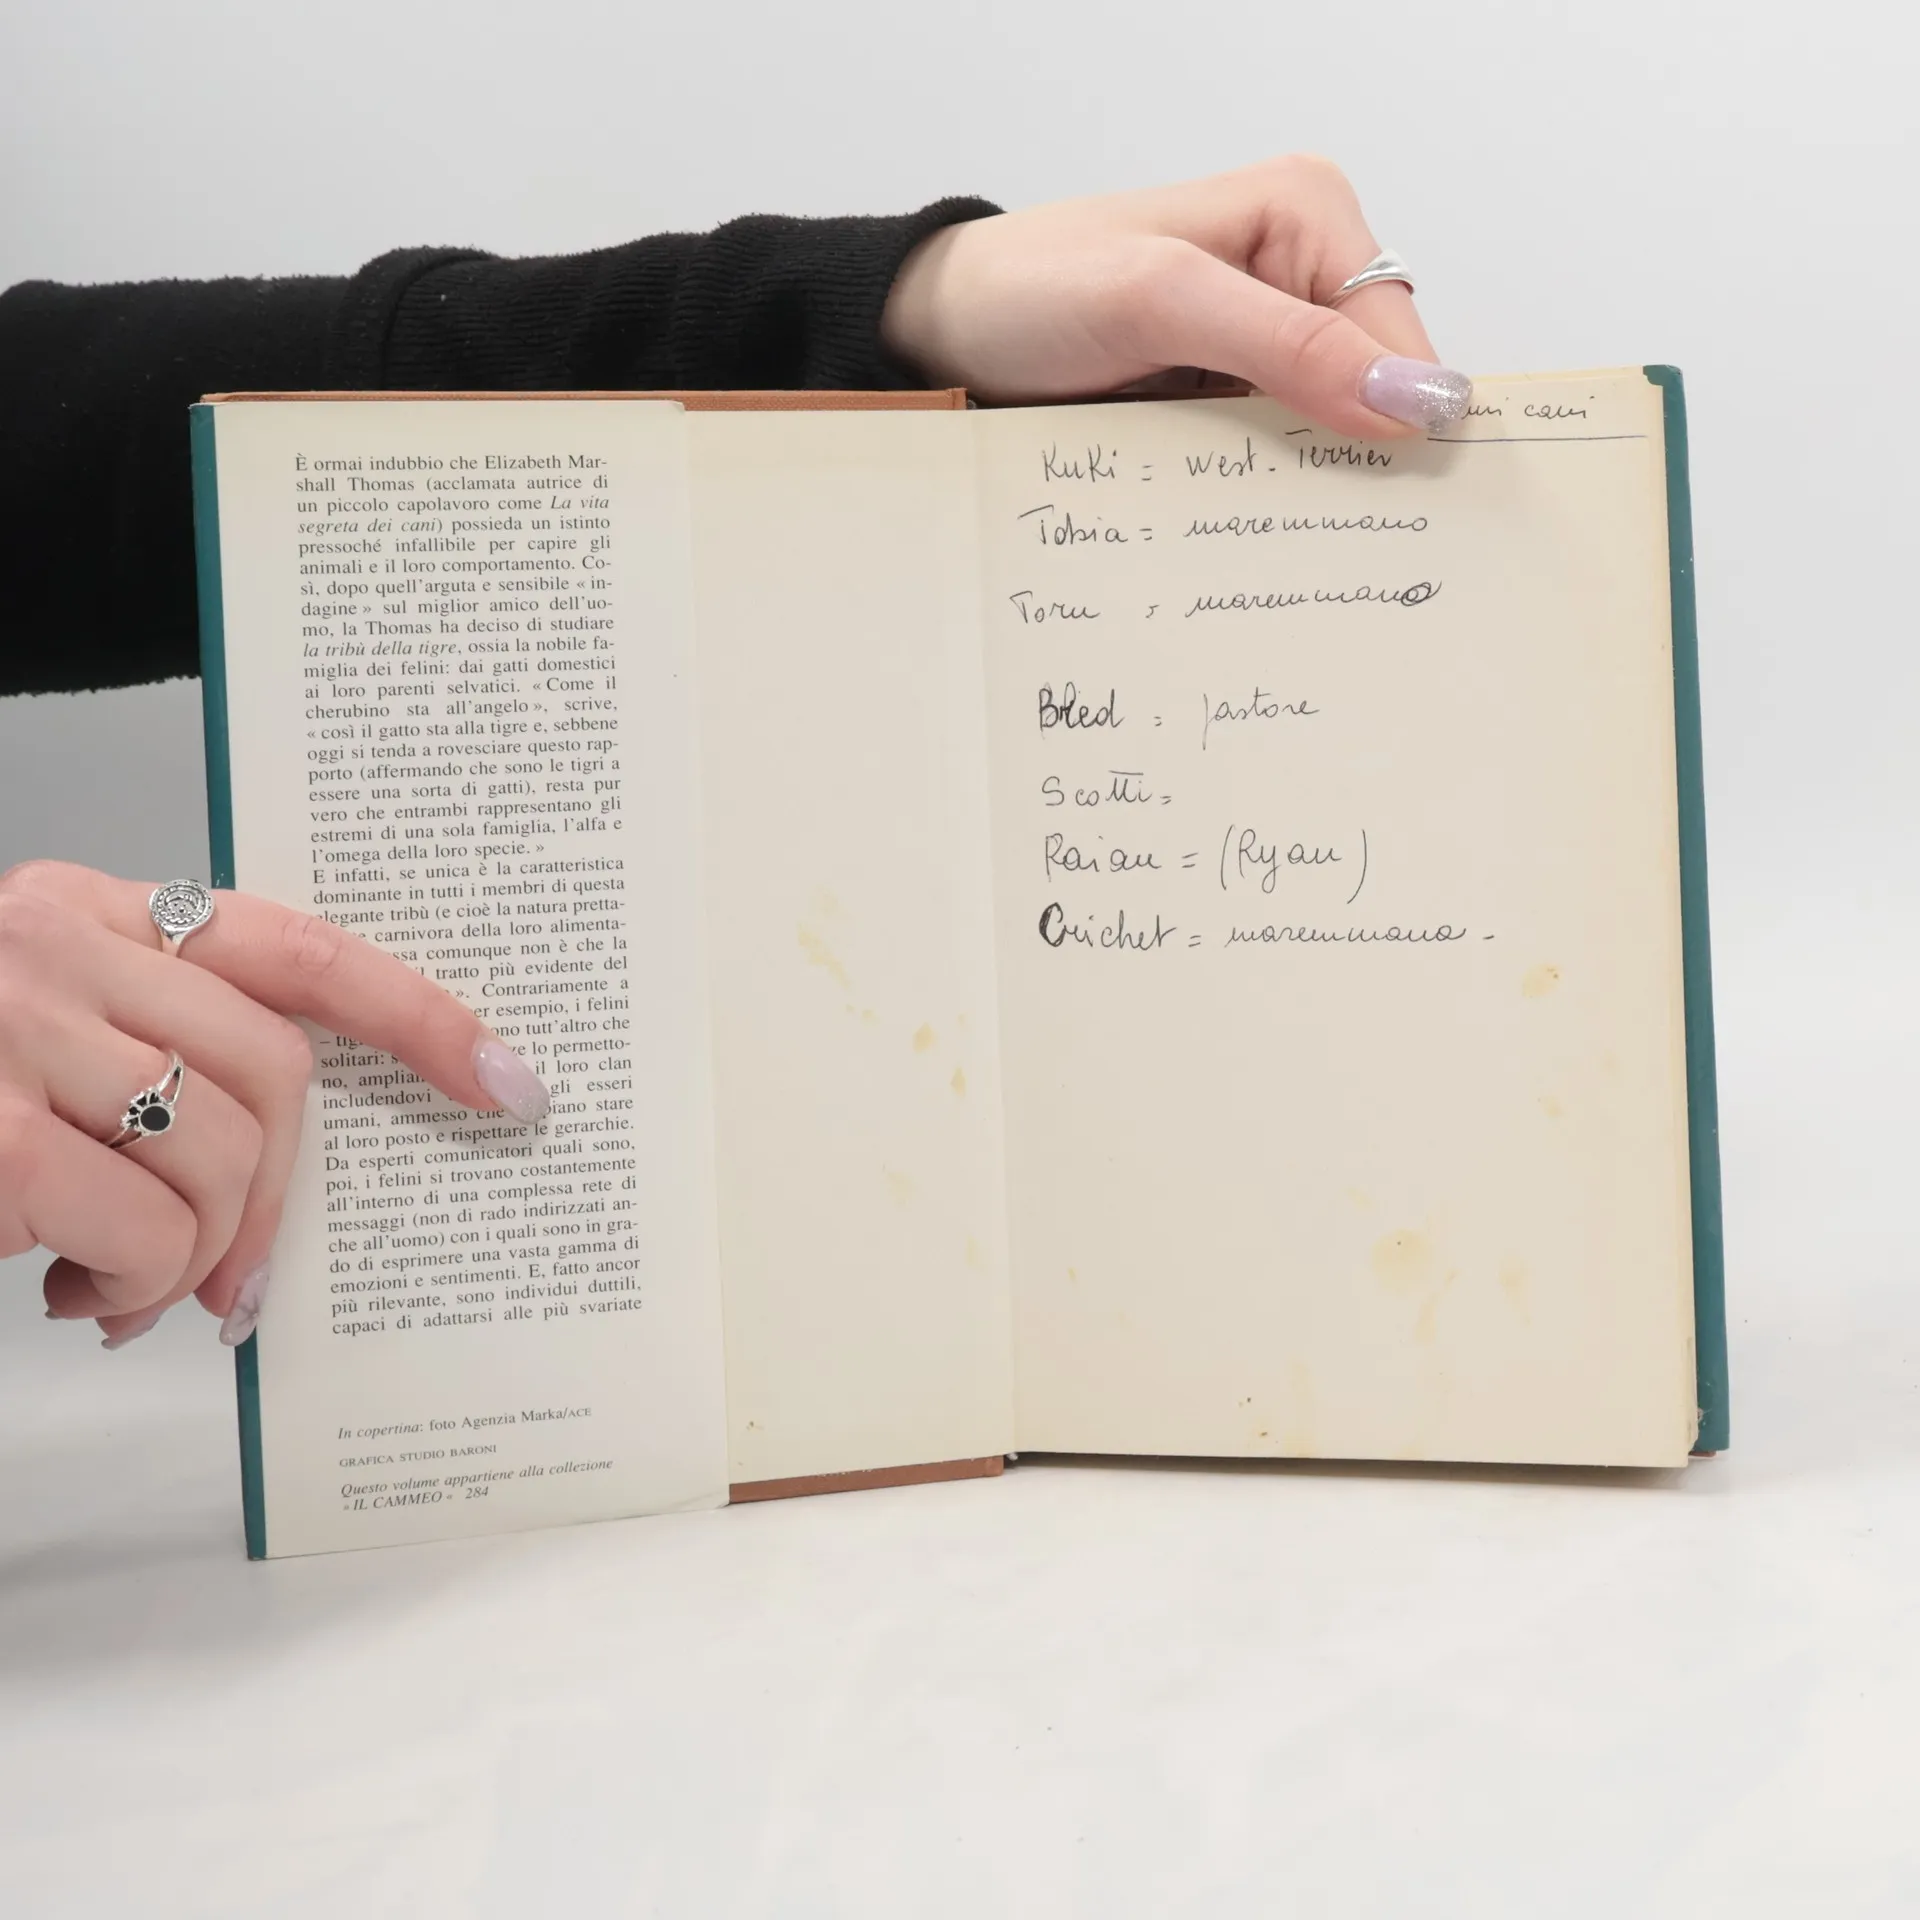 È ormai indubbio che Elizabeth Mar-
shall Thomas (acclamata autrice di
un piccolo capolavoro come La vita
segreta dei cani) possieda un istinto
pressoché infallibile per capire gli
animali e il loro comportamento. Co-
sì, dopo quell'arguta e sensibile « in-
dagine » sul miglior amico dell'uo-
mo, la Thomas ha deciso di studiare
la tribù della tigre, ossia la nobile fa-
miglia dei felini: dai gatti domestici
ai loro parenti selvatici. « Come il
cherubino sta all'angelo », scrive,
« così il gatto sta alla tigre e, sebbene
oggi si tenda a rovesciare questo rap-
porto (affermando che sono le tigri a
essere una sorta di gatti), resta pur
vero che entrambi rappresentano gli
estremi di una sola famiglia, l'alfa e
l'omega della loro specie. »
E infatti, se unica è la caratteristica
dominante in tutti i membri di questa
elegante tribù (e cioè la natura pretta-
carnivora della loro alimenta-
ssa comunque non è che la
il tratto più evidente del
». Contrariamente a
er esempio, i felini
ono tutt'altro che
solitari: s ve lo permetto-
no, amplian il loro clan
includendovi gli esseri
umani, ammesso che piano stare
al loro posto e rispettare le gerarchie.
Da esperti comunicatori quali sono,
poi, i felini si trovano costantemente
all'interno di una complessa rete di
messaggi (non di rado indirizzati an-
che all'uomo) con i quali sono in gra-
do di esprimere una vasta gamma di
emozioni e sentimenti. E, fatto ancor
più rilevante, sono individui duttili,
capaci di adattarsi alle più svariate
In copertina: foto Agenzia Marka/ACE
GRAFICA STUDIO BARONI
Questo volume appartiene alla collezione
« IL CAMMEO « 284
cani
KuKi = West. Terrier
Tobia = maremmano
Toru = maremmano
Bled = pastore
Scotti =
Raian = (Ryan)
Crichet = maremmana -